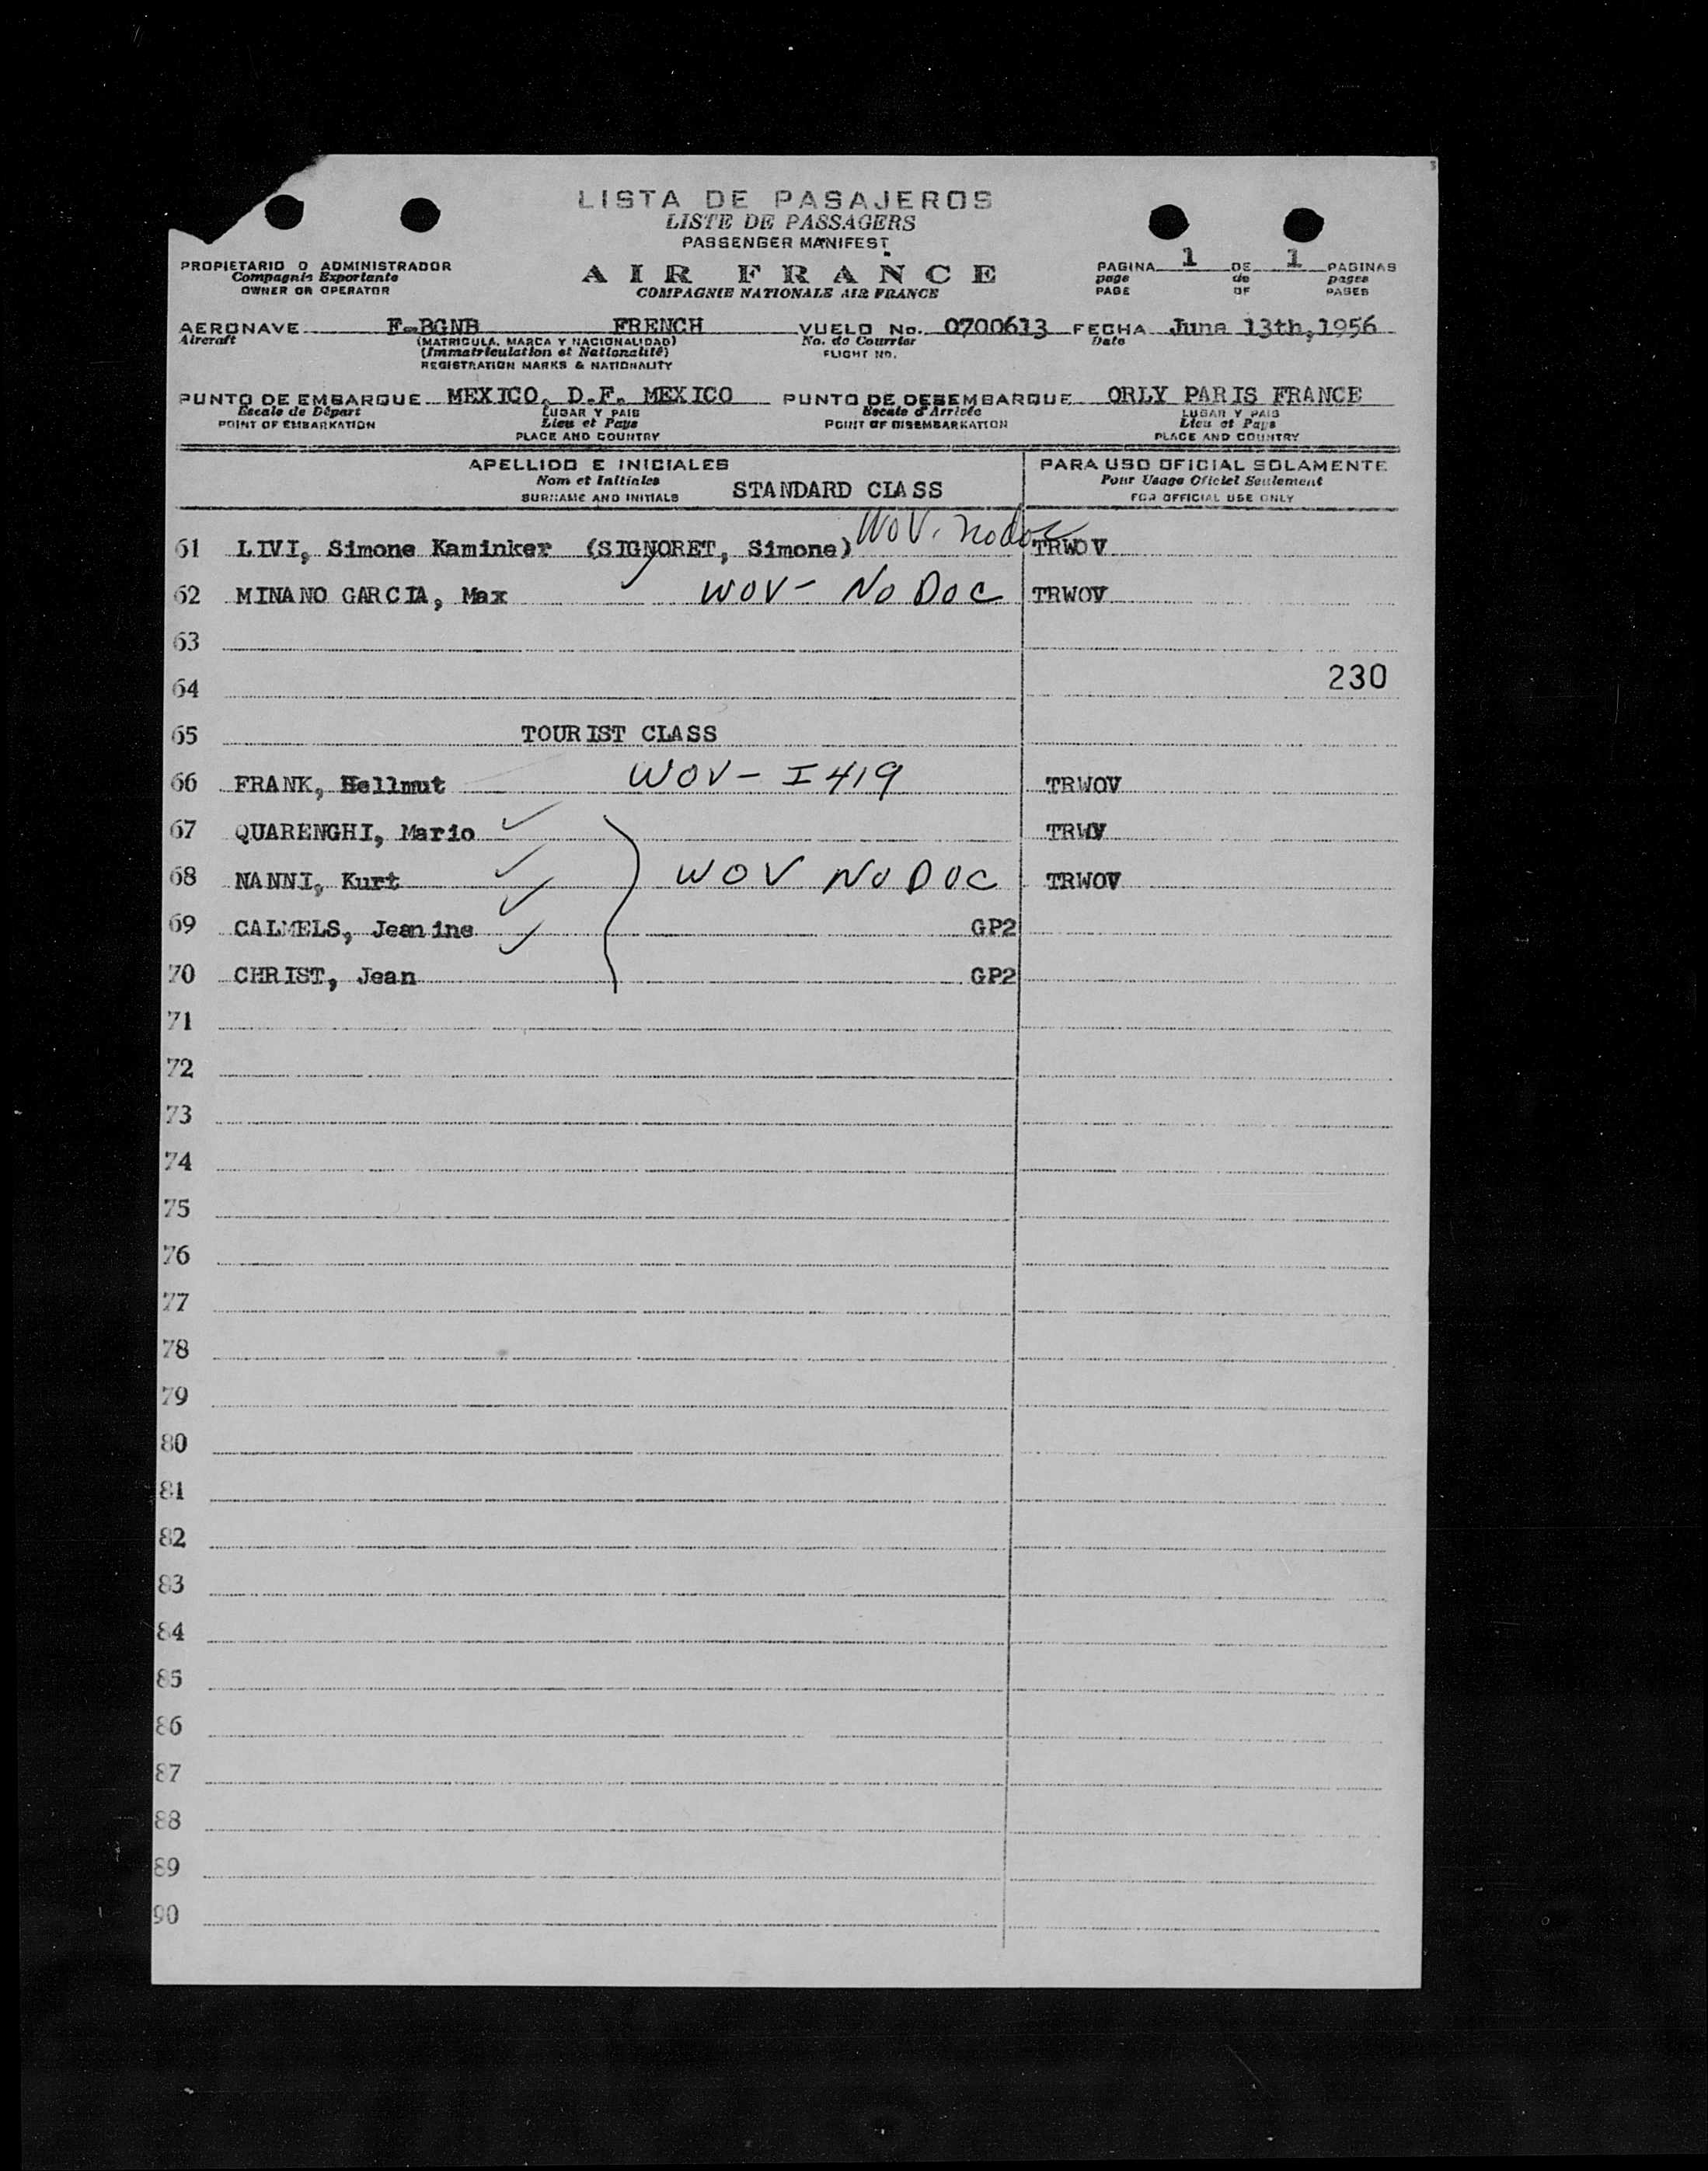 LISTA DE PASAJEROS
LISTE DE PASSAGERS
PASSENGER MANIFEST
PROPIETARIO O ADMINISTRADOR
Compagnie Exportante
OWNER OR OPERATOR
AIR FRANCE
COMPAGNIE NATIONALE AIR FRANCE
PAGINA 1 DE 1 PAGINAS
page de pages
PAGE OF PAGES
AERONAVE F-BGNB FRENCH VUELO No. 0700613 FECHA June 13th, 1956
Aircraft (MATRICULA, MARCA Y NACIONALIDAD) No. do Courrier Date
(Immatriculation et Nationalité) FLIGHT NO.
REGISTRATION MARKS & NATIONALITY
PUNTO DE EMBARQUE MEXICO, D.F. MEXICO PUNTO DE DESEMBARQUE ORLY PARIS FRANCE
Escale de Départ LUGAR Y PAIS Escale d'Arrivée LUGAR Y PAIS
POINT OF EMBARKATION Lieu et Pays POINT OF DISEMBARKATION Lieu et Pays
PLACE AND COUNTRY PLACE AND COUNTRY
APELLIDO E INICIALES PARA USO OFICIAL SOLAMENTE
Nom et Initiales Pour Usage Oficiel Seulement
SURNAME AND INITIALS STANDARD CLASS FOR OFFICIAL USE ONLY
61 LIVI, Simone Kaminker (SIGNORET, Simone) WOV. nodoc TRWOV
62 MINANO GARCIA, Max WOV - NO DOC TRWOV
63
64 230
65 TOURIST CLASS
66 FRANK, Hellmut WOV - I 419 TRWOV
67 QUARENGHI, Mario TRWV
68 NANNI, Kurt WOV NO DOC TRWOV
69 CALMELS, Jeanine GP2
70 CHRIST, Jean GP2
71
72
73
74
75
76
77
78
79
80
81
82
83
84
85
86
87
88
89
90